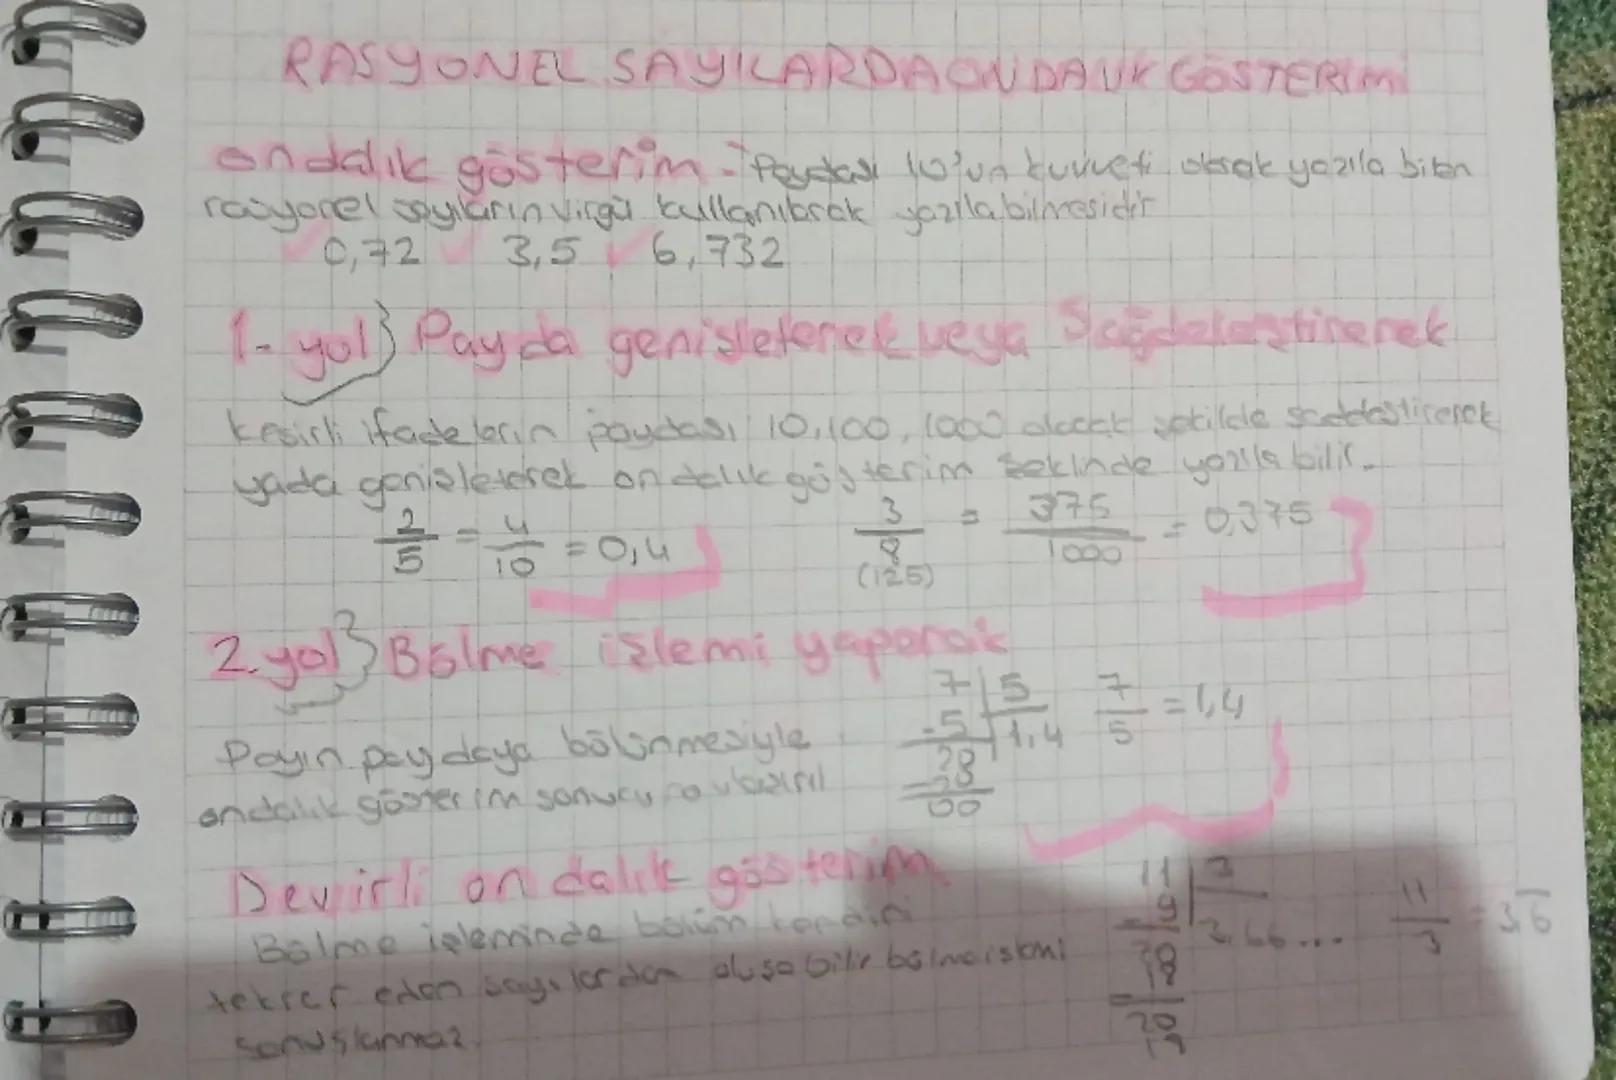 RASYONEL SAYILARDA ONDALIK GÖSTERİMİ
ondalık gösterim - Paydası 10'un kuvveti olarak yazıla bilen
rasyonel sayıların virgül kullanılarak yazıla bilmesidir
0,72 3,5 6,732
1- yol} Payda genişleterek veya Sadeleştirerek
kesirli ifadelerin paydası 10,100,1000 olacak şekilde sadeleştirerek
yada genişleterek ondalık gösterim şeklinde yazıla bilir.
2/5 = 4/10 = 0,4
3/8 = 375/1000 = 0,375
(125)
2 yol} Bölme işlemi yaparak
Payın paydaya bölünmesiyle
ondalık gösterim sonucuna ulaşırıl
7 | 5
-5 | 1,4
20
00
7/5 = 1,4
Devirli ondalık gösterim
Bölme işleminde bölüm kendini
tekrar eden sayılardan oluşabilir bölme işlemi
sonuşlanmaz
11 | 3
- 9 | 3,66...
20
18
20
11/3 = 3,6̅